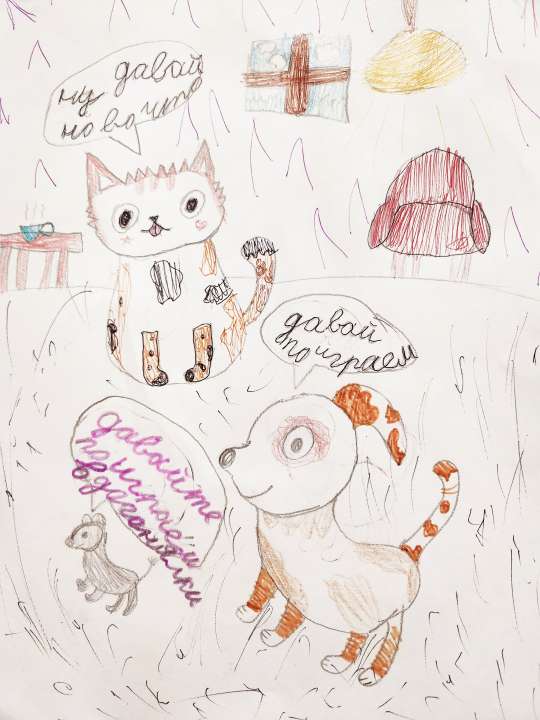 ну давай
но во что
давай
поиграем
давайте
поиграем
в догонялки